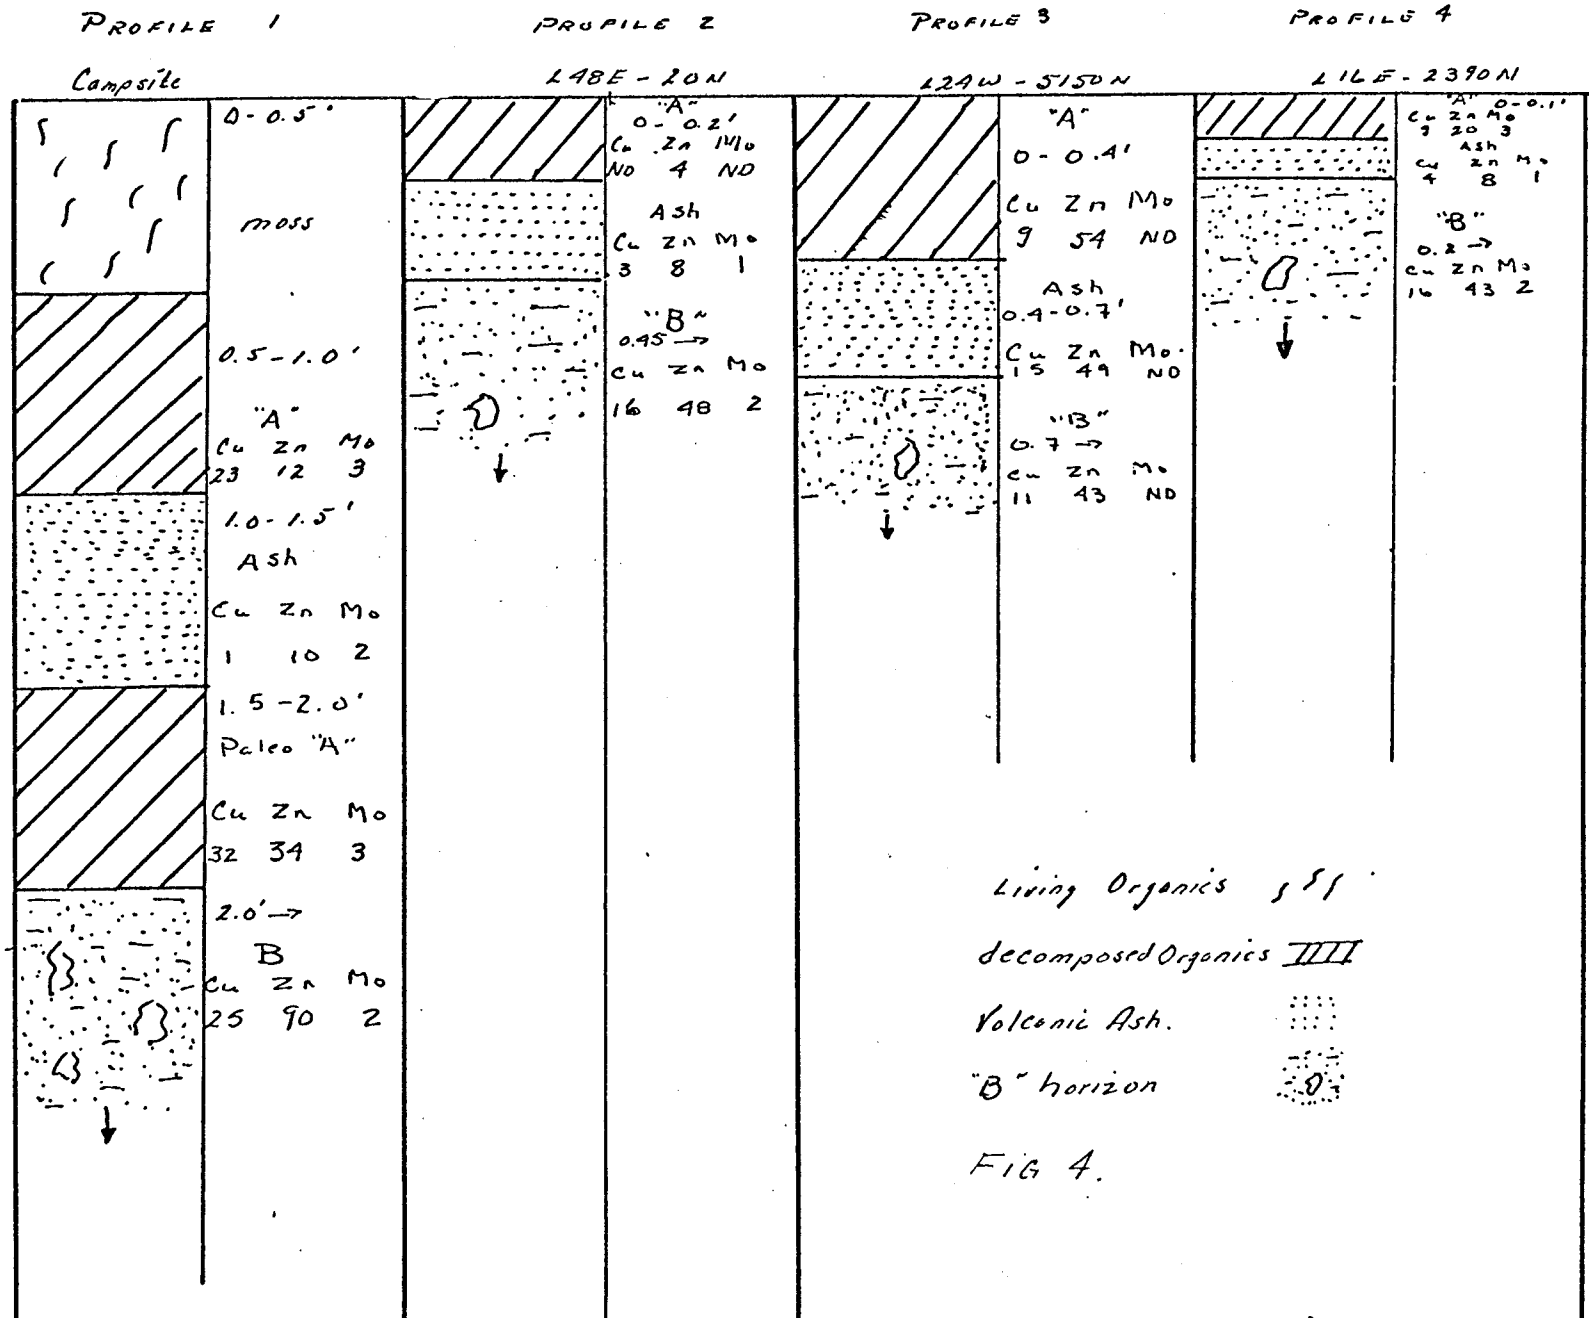 PROFILE 1
Campsite
0-0.5'
moss
0.5-1.0'
"A"
Cu Zn Mo
23 12 3
1.0-1.5'
Ash
Cu Zn Mo
1 10 2
1.5-2.0'
Paleo "A"
Cu Zn Mo
32 34 3
2.0'→
B
Cu Zn Mo
25 90 2
PROFILE 2
L48E-20N
"A"
0-0.2'
Cu Zn Mo
ND 4 ND
Ash
Cu Zn Mo
3 8 1
"B"
0.45→
Cu Zn Mo
16 48 2
PROFILE 3
L24W-5150N
"A"
0-0.4'
Cu Zn Mo
9 54 ND
Ash
0.4-0.7'
Cu Zn Mo.
15 49 ND
"B"
0.7→
Cu Zn Mo
11 43 ND
PROFILE 4
L16E-2390N
"A" 0-0.1'
Cu Zn Mo
9 20 3
Ash
Cu Zn Mo
4 8 1
"B"
0.2→
Cu Zn Mo
16 43 2
Living Organics
decomposed Organics
Volcanic Ash.
"B" horizon
FIG 4.